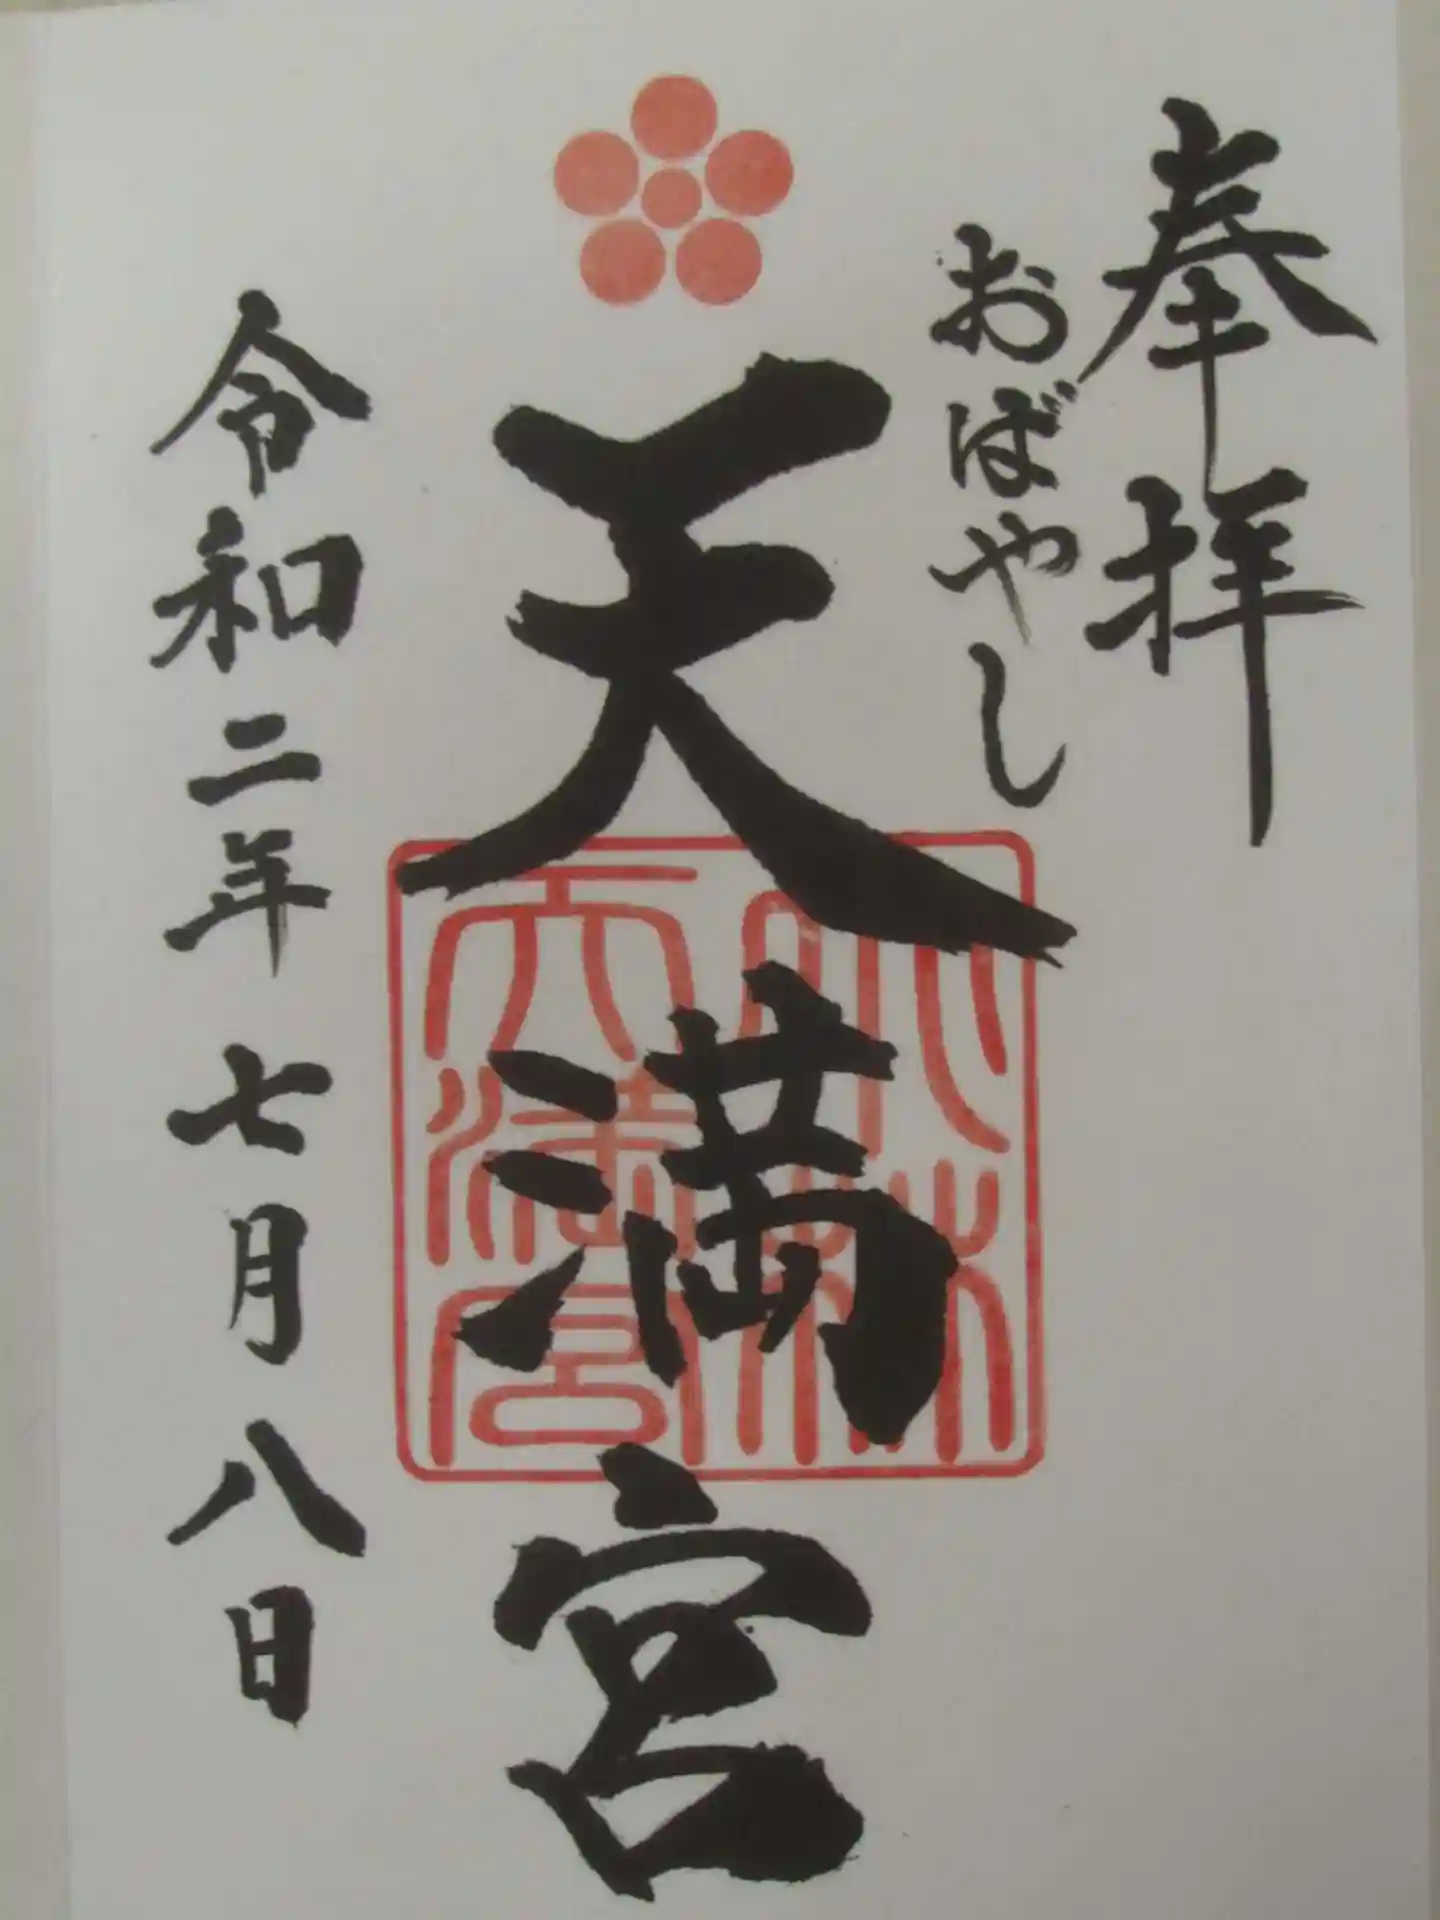 奉拝
おばやし
天満宮
小林
天満宮
令和二年 七月 八日